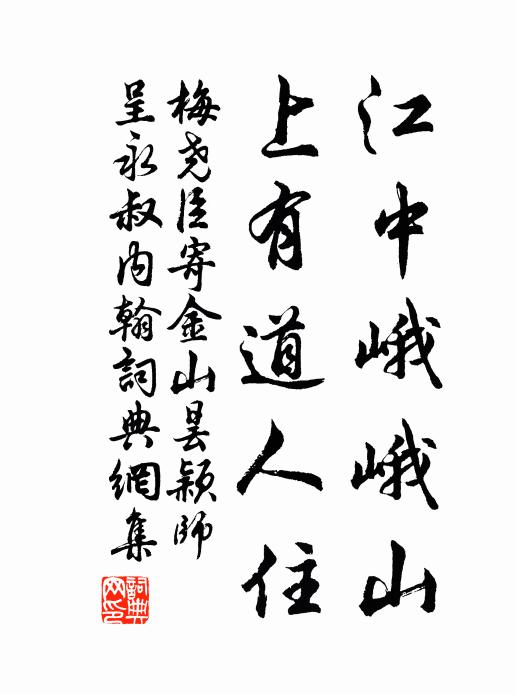 江中峨峨山
上有道人住
梅尧臣寄金山昙颖师
呈永叔内翰詞典網集
詞典
网印